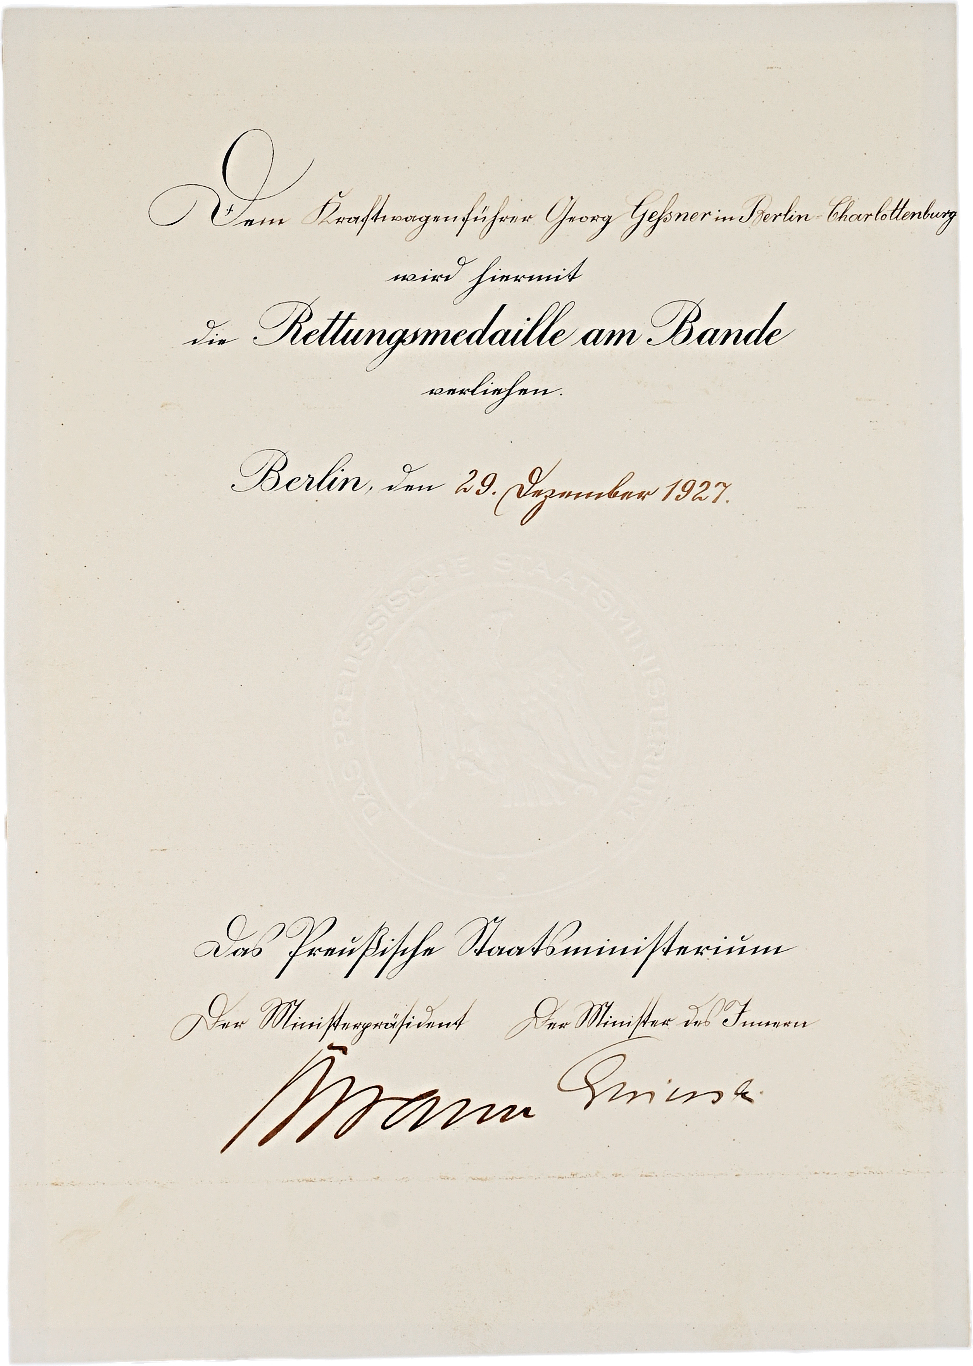 Dem Kraftwagenführer Georg Geßner in Berlin-Charlottenburg
wird hiermit
die Rettungsmedaille am Bande
verliehen.
Berlin, den 29. Dezember 1927.
DAS PREUSSISCHE STAATSMINISTERIUM
Das Preußische Staatsministerium
Der Ministerpräsident Der Minister des Innern
Braun